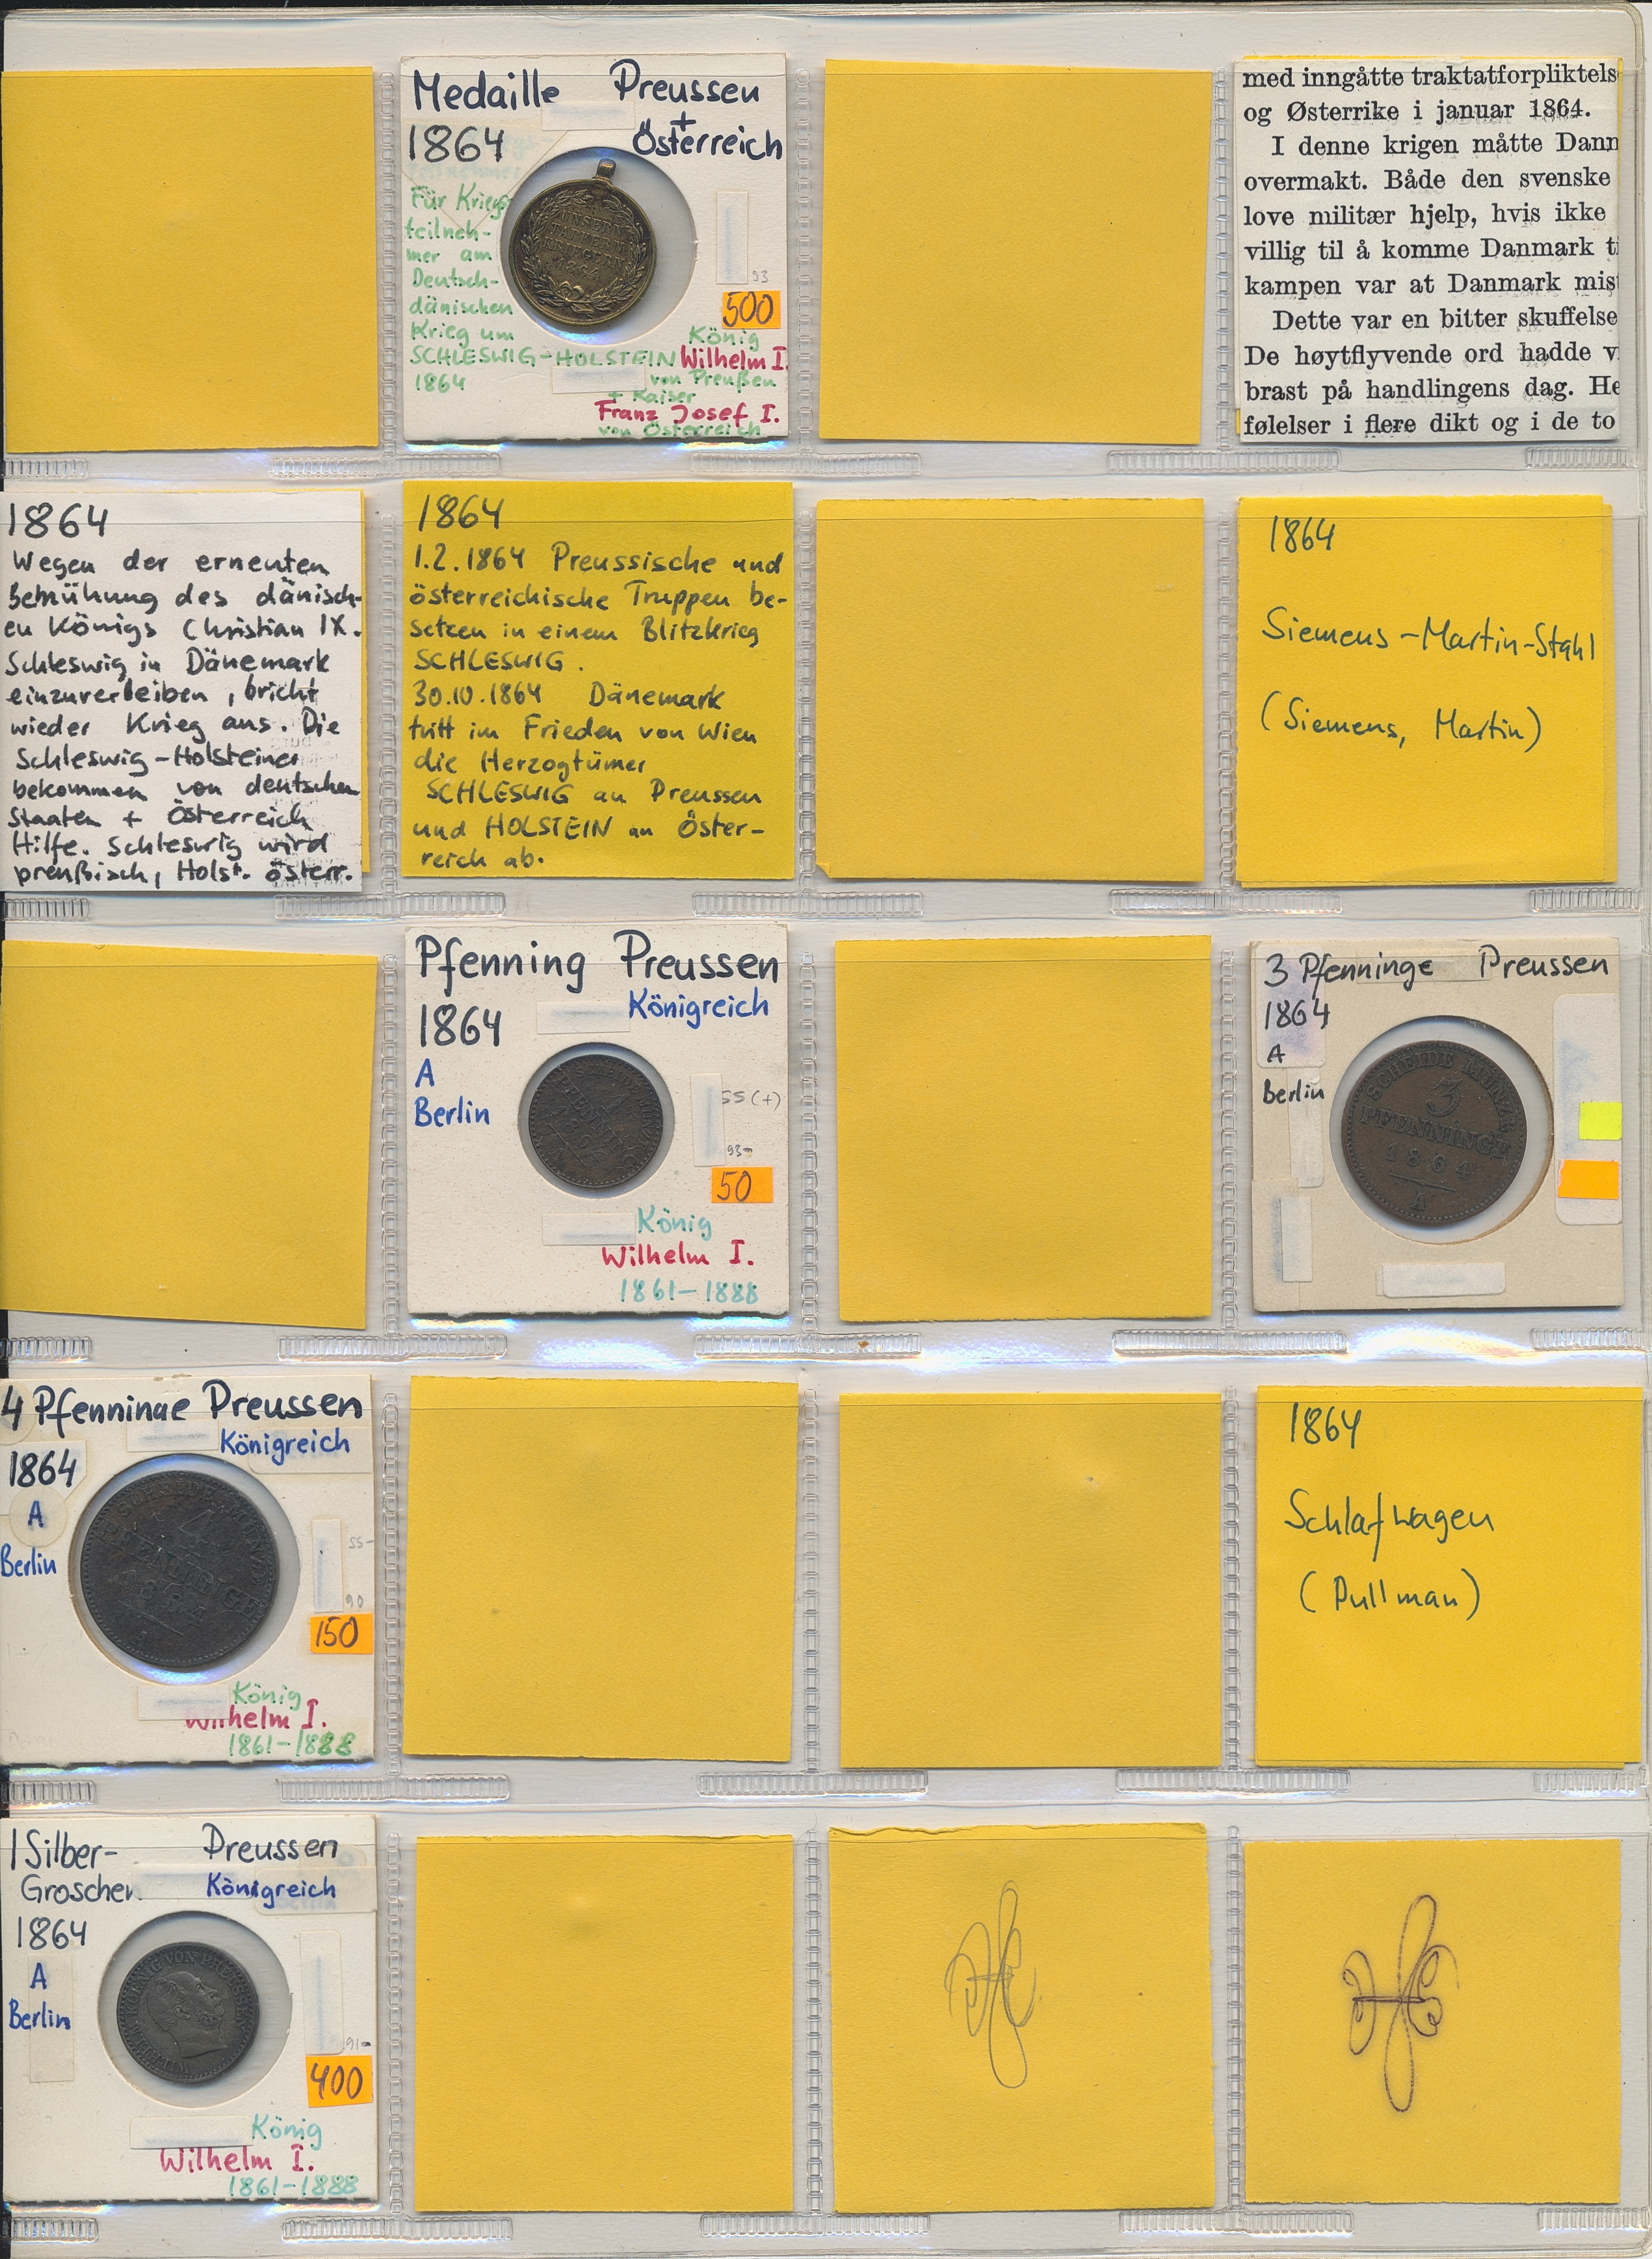 Medaille Preussen
+
1864 Österreich
Für Kriegs-
teilneh-
mer am
Deutsch-
dänischen
Krieg um
SCHLESWIG-HOLSTEIN
1864
UNSERN
TAPFERN
KRIEGERN
1864
93
500
König
Wilhelm I.
von Preußen
+ Kaiser
Franz Josef I.
von Österreich
med inngåtte traktatforpliktels
og Østerrike i januar 1864.
I denne krigen måtte Dann
overmakt. Både den svenske
love militær hjelp, hvis ikke
villig til å komme Danmark ti
kampen var at Danmark mist
Dette var en bitter skuffelse
De høytflyvende ord hadde v
brast på handlingens dag. He
følelser i flere dikt og i de to
1864
Wegen der erneuten
Bemühung des dänisch-
en Königs Christian IX.
Schleswig in Dänemark
einzuverleiben, bricht
wieder Krieg aus. Die
Schleswig-Holsteiner
bekommen von deutschen
Staaten + Österreich
Hilfe. Schleswig wird
preußisch, Holst. österr.
1864
1.2.1864 Preussische und
österreichische Truppen be-
setzen in einem Blitzkrieg
SCHLESWIG.
30.10.1864 Dänemark
tritt im Frieden von Wien
die Herzogtümer
SCHLESWIG an Preussen
und HOLSTEIN an Öster-
reich ab.
1864
Siemens-Martin-Stahl
(Siemens, Martin)
Pfenning Preussen
1864 Königreich
A
Berlin
SCHEIDEMÜNZE
1
PFENNING
1864
A
ss(+)
93-
50
König
Wilhelm I.
1861-1888
3 Pfenninge Preussen
1864
A
Berlin
SCHEIDE MÜNZE
3
PFENNINGE
1864
A
4 Pfenninge Preussen
1864 Königreich
A
Berlin
SCHEIDEMÜNZE
4
PFENNINGE
1864
A
ss-
90
150
König
Wilhelm I.
1861-1888
1864
Schlafwagen
(Pullman)
1 Silber- Preussen
Groschen Königreich
1864
A
Berlin
WILHELM KOENIG VON PREUSSEN
91-
400
König
Wilhelm I.
1861-1888